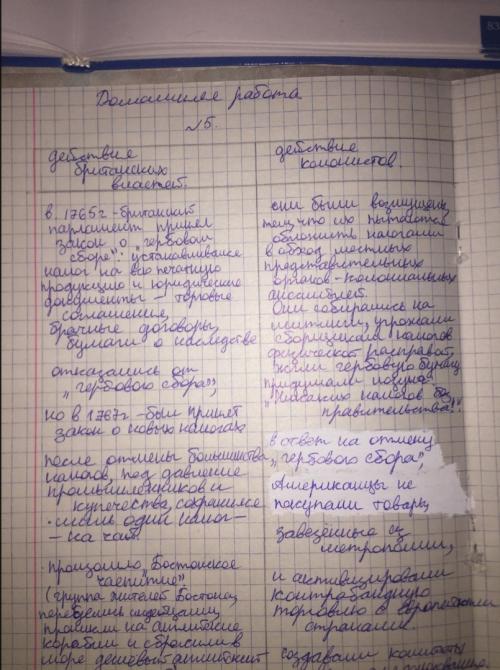 Домашняя работа
№5.
действие
британских
властей.
в 1765г - британский
парламент принял
закон о „гербовом
сборе": устанавливался
налог на всю печатную
продукцию и юридические
документы - торговые
соглашения,
брачные договоры,
бумаги о наследстве
отказались от
„гербового сбора",
но в 1767г - был принят
закон о новых налогах
после отмены большинства
налогов, под давление
промышленников и
купечества, сохранился
лишь один налог -
- на чай.
произошло „Бостонское
чаепитие"
(группа жителей Бостона,
переодевшись индейцами,
проникли на английские
корабли и сбросили в
море дешёвый английский
действие
колонистов.
они были возмущены
тем, что их пытаются
обложить налогами
в обход местных
представительных
органов - колониальных
ассамблей.
Они собирались на
митинги, угрожали
сборщикам налогов
физической расправой,
жгли гербовую бумагу,
придумали лозунг:
„Никаких налогов без
правительства!"
в ответ на отмену
„гербового сбора",
Американцы не
покупали товары,
завезённые из
метрополии,
и активировали
контрабандную
торговлю с европейскими
странами.
создавали комитеты